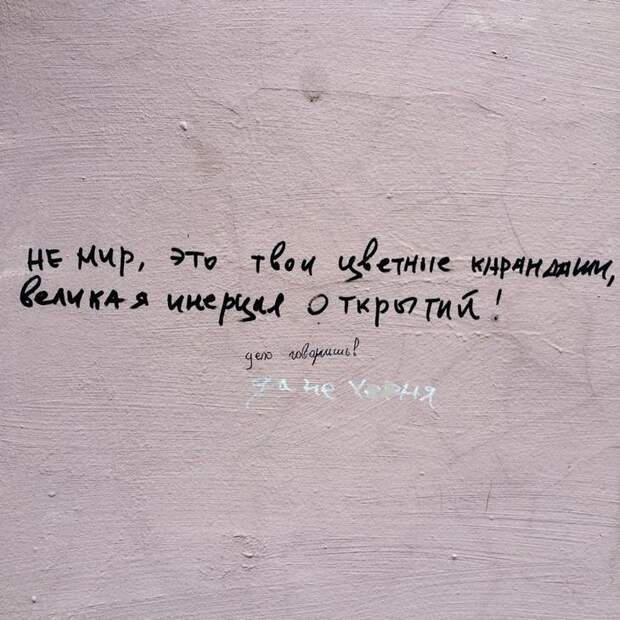 не мир, это твои цветные карандаши,
великая инерция открытий!
дело говоришь!
да не херня